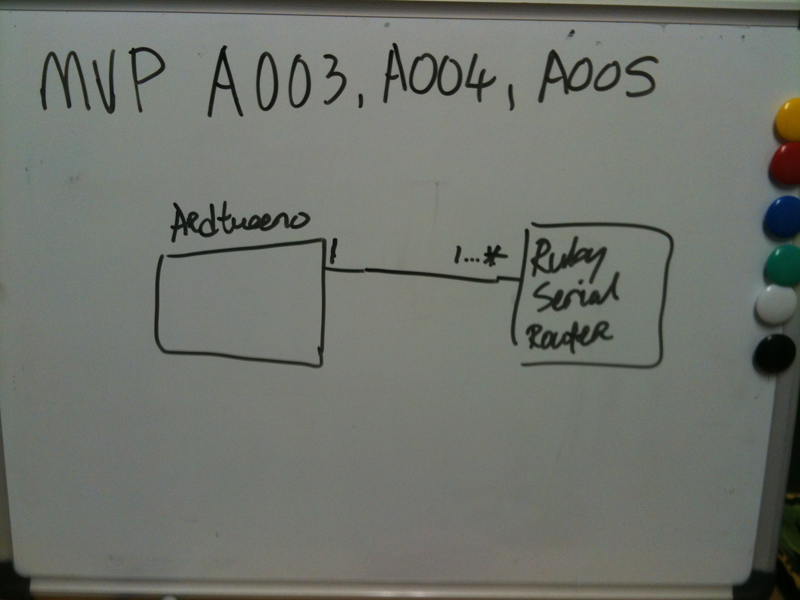 MVP A003, A004, A005
Ardtueeno
1 1...*
Ruby
Serial
Router